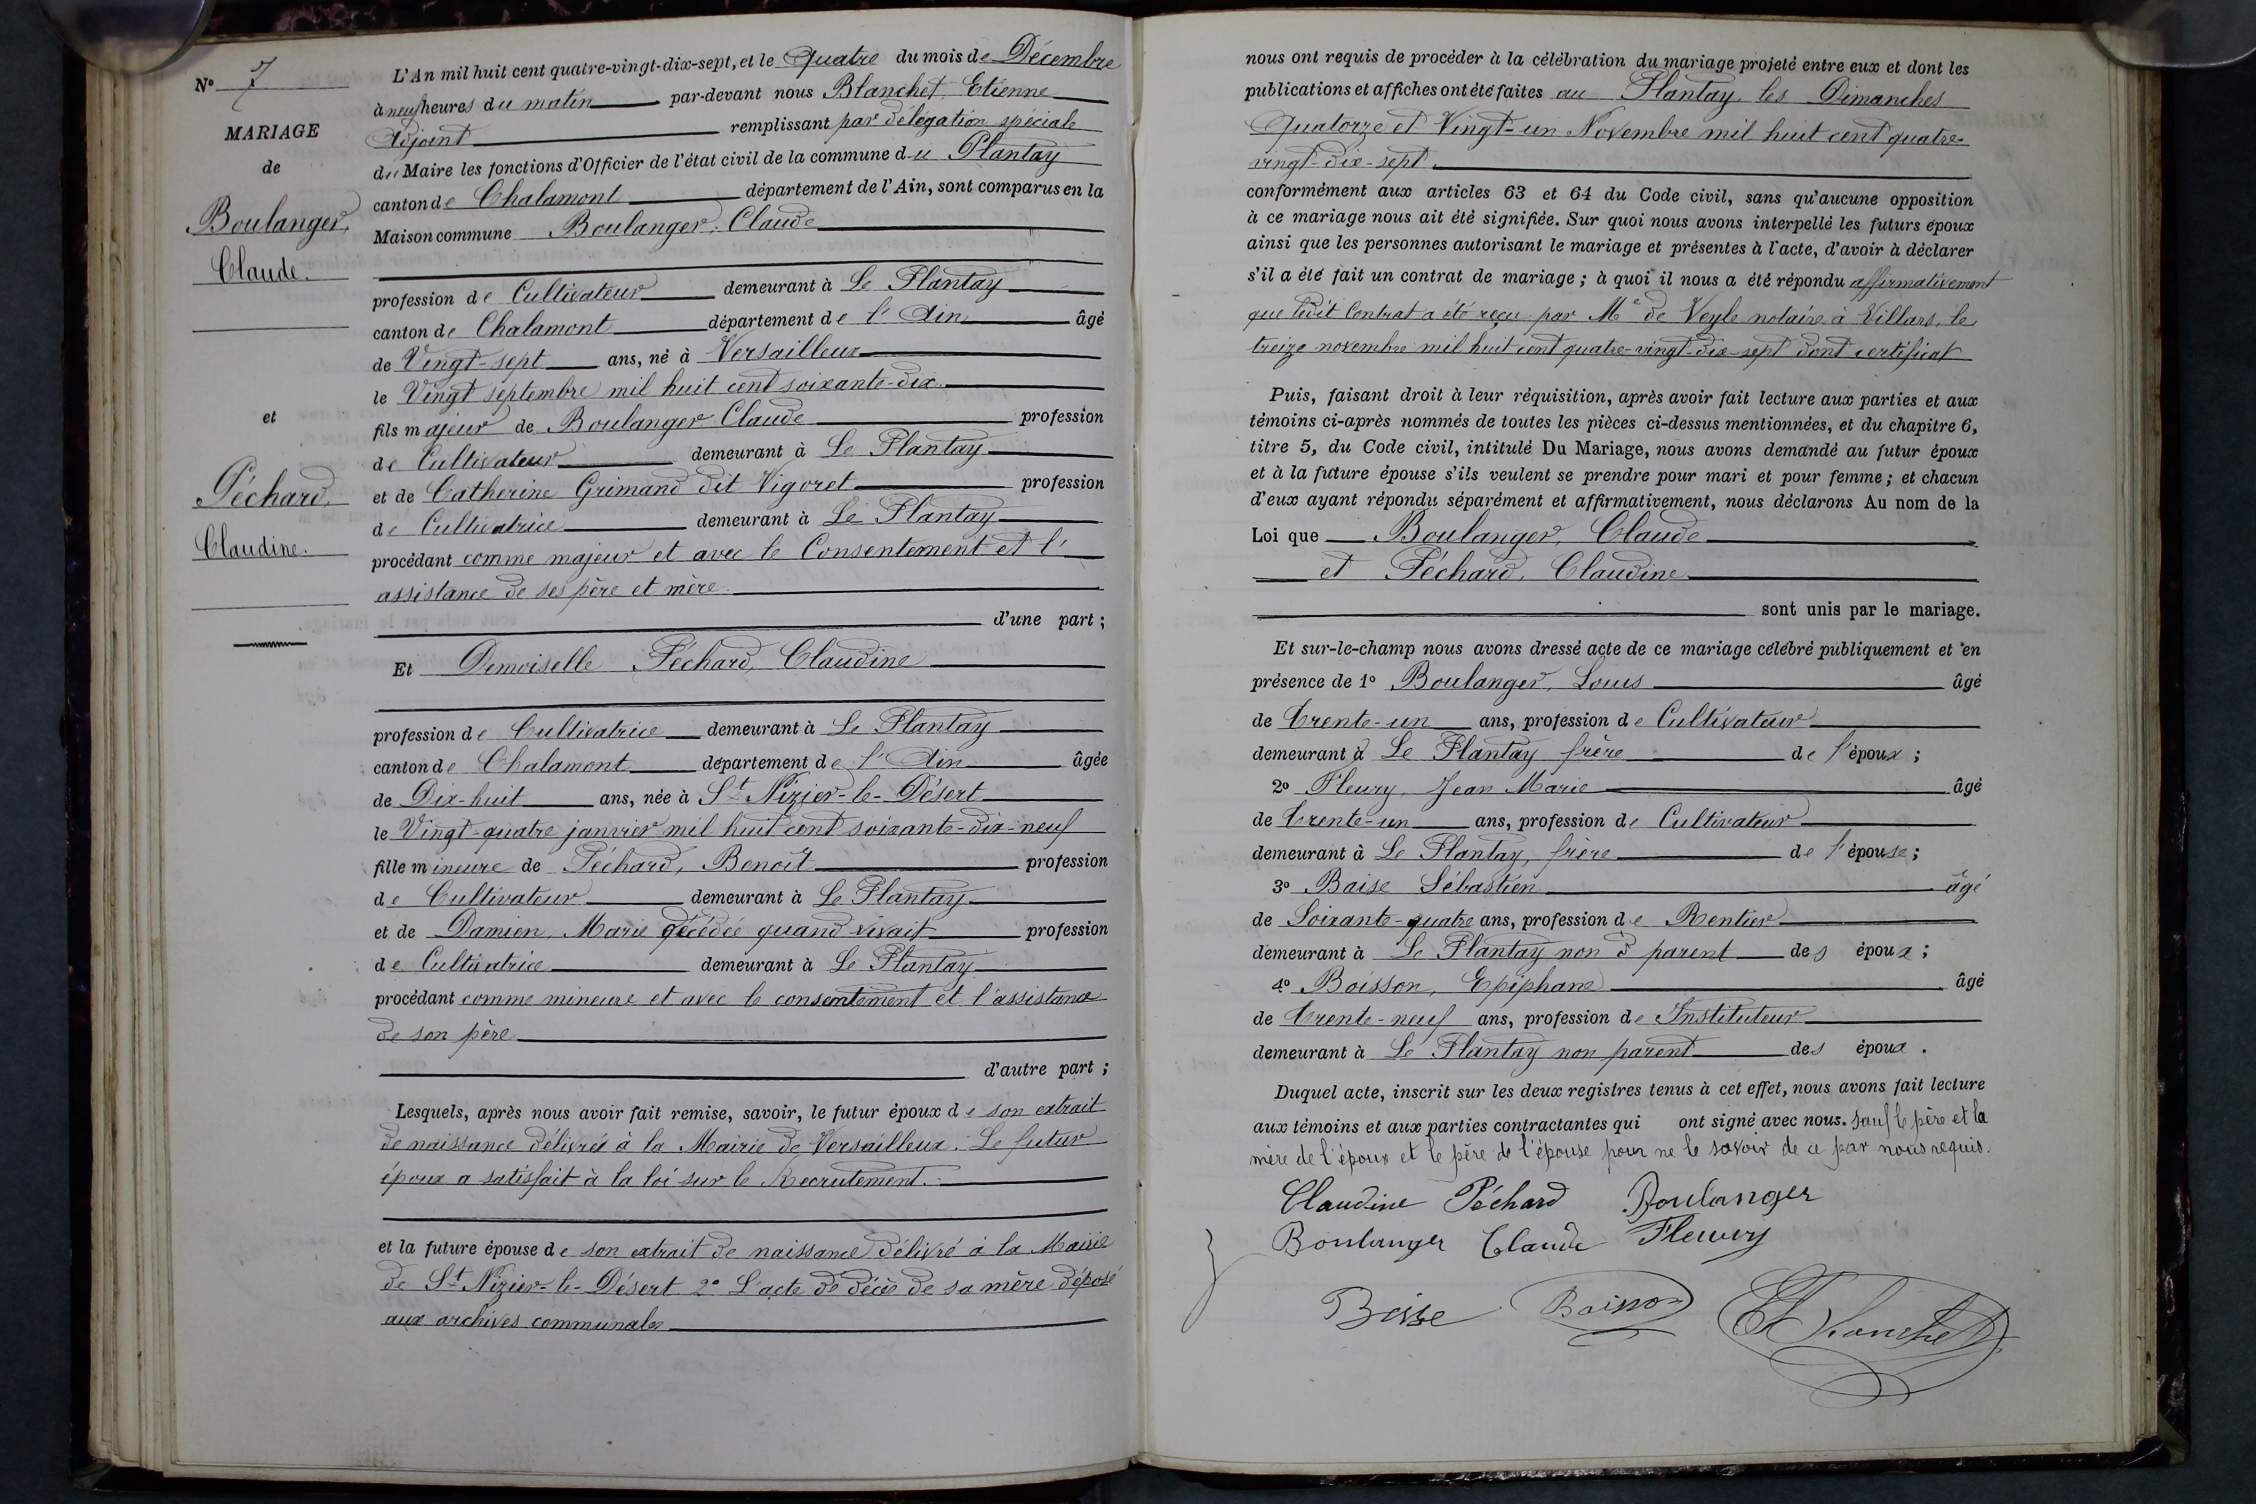 N° 7
MARIAGE
de
Boulanger,
Claude.
et
Péchard,
Claudine.
L'An mil huit cent quatre-vingt-dix-sept, et le Quatre du mois de Décembre
à neuf heures du matin par-devant nous Blanchet Etienne
Adjoint remplissant par délégation spéciale
du Maire les fonctions d'Officier de l'état civil de la commune du Plantay
canton de Chalamont département de l'Ain, sont comparus en la
Maison commune Boulanger, Claude
profession de Cultivateur demeurant à Le Plantay
canton de Chalamont département de l'Ain âgé
de Vingt-sept ans, né à Versailleux
le Vingt septembre mil huit cent soixante-dix
fils majeur de Boulanger Claude profession
de Cultivateur demeurant à Le Plantay
et de Catherine Grimand dit Vigoret profession
de Cultivatrice demeurant à Le Plantay
procédant comme majeur et avec le Consentement et l'
assistance de ses père et mère
d'une part ;
Et Demoiselle Péchard, Claudine
profession de Cultivatrice demeurant à Le Plantay
canton de Chalamont département de l'Ain âgée
de Dix-huit ans, née à St Nizier-le-Désert
le Vingt-quatre janvier mil huit cent soixante-dix-neuf
fille mineure de Péchard, Benoît profession
de Cultivateur demeurant à Le Plantay
et de Damien, Marie décédée quand vivait profession
de Cultivatrice demeurant à Le Plantay
procédant comme mineure et avec le consentement et l'assistance
de son père
d'autre part ;
Lesquels, après nous avoir fait remise, savoir, le futur époux de son extrait
de naissance délivrée à la Mairie de Versailleux. Le futur
époux a satisfait à la loi sur le Recrutement.
et la future épouse de son extrait de naissance délivré à la Mairie
de St Nizier-le-Désert 2° L'acte de décès de sa mère déposé
aux archives communales
nous ont requis de procéder à la célébration du mariage projeté entre eux et dont les
publications et affiches ont été faites au Plantay les Dimanches
Quatorze et Vingt-un Novembre mil huit cent quatre-
vingt-dix-sept.
conformément aux articles 63 et 64 du Code civil, sans qu'aucune opposition
à ce mariage nous ait été signifiée. Sur quoi nous avons interpellé les futurs époux
ainsi que les personnes autorisant le mariage et présentes à l'acte, d'avoir à déclarer
s'il a été fait un contrat de mariage ; à quoi il nous a été répondu affirmativement
que ledit Contrat a été reçu par Me de Veyle notaire à Villars, le
treize novembre mil huit cent quatre-vingt-dix-sept dont certificat
Puis, faisant droit à leur réquisition, après avoir fait lecture aux parties et aux
témoins ci-après nommés de toutes les pièces ci-dessus mentionnées, et du chapitre 6,
titre 5, du Code civil, intitulé Du Mariage, nous avons demandé au futur époux
et à la future épouse s'ils veulent se prendre pour mari et pour femme ; et chacun
d'eux ayant répondu séparément et affirmativement, nous déclarons Au nom de la
Loi que Boulanger, Claude
et Péchard, Claudine
sont unis par le mariage.
Et sur-le-champ nous avons dressé acte de ce mariage célébré publiquement et en
présence de 1° Boulanger, Louis âgé
de Trente-un ans, profession de Cultivateur
demeurant à Le Plantay frère de l'époux ;
2° Fleury, Jean Marie âgé
de Trente-un ans, profession de Cultivateur
demeurant à Le Plantay, frère de l'épouse ;
3° Baise Sébastien âgé
de Soixante-quatre ans, profession de Rentier
demeurant à Le Plantay non parent des époux ;
4° Boisson, Epiphane âgé
de Trente-neuf ans, profession de Instituteur
demeurant à Le Plantay non parent des époux .
Duquel acte, inscrit sur les deux registres tenus à cet effet, nous avons fait lecture
aux témoins et aux parties contractantes qui ont signé avec nous. Sauf le père et la
mère de l'époux et le père de l'épouse pour ne le savoir de ce par nous requis.
Claudine Péchard Boulanger
Boulanger Claude Fleury
Beisse Boisson E Blanchet